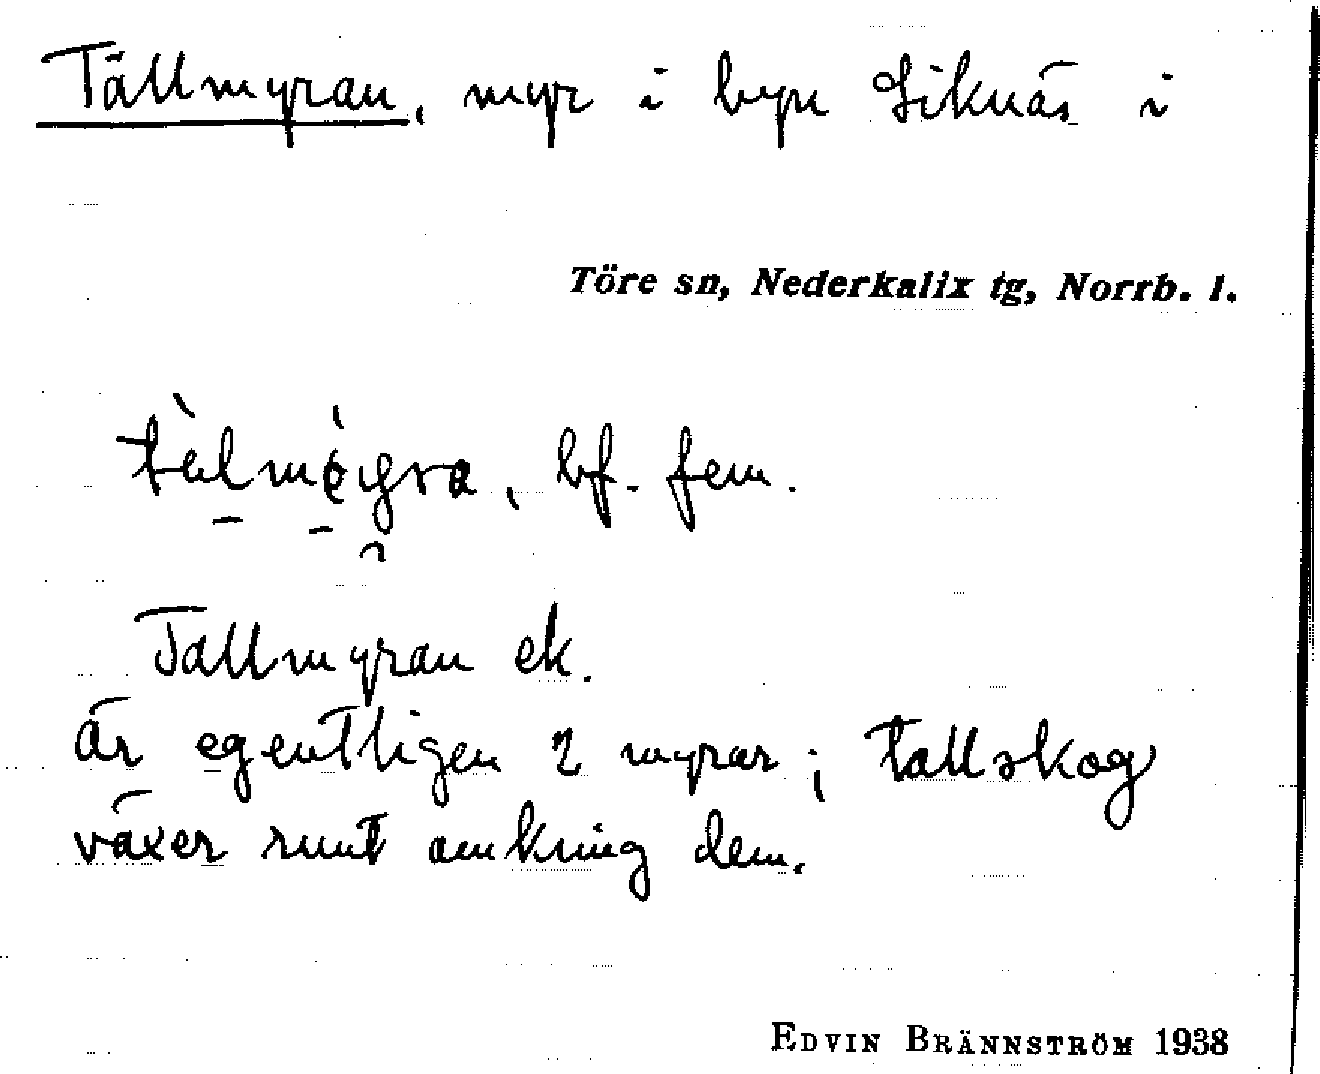 Tällmyran, myr i byn Siknäs i
Töre sn, Nederkalix tg, Norrb. l.
bf. fem.
Tallmyran ek.
är egentligen 2 myrar; tallskog
växer runt omkring dem.
EDVIN BRÄNNSTRÖM 1938